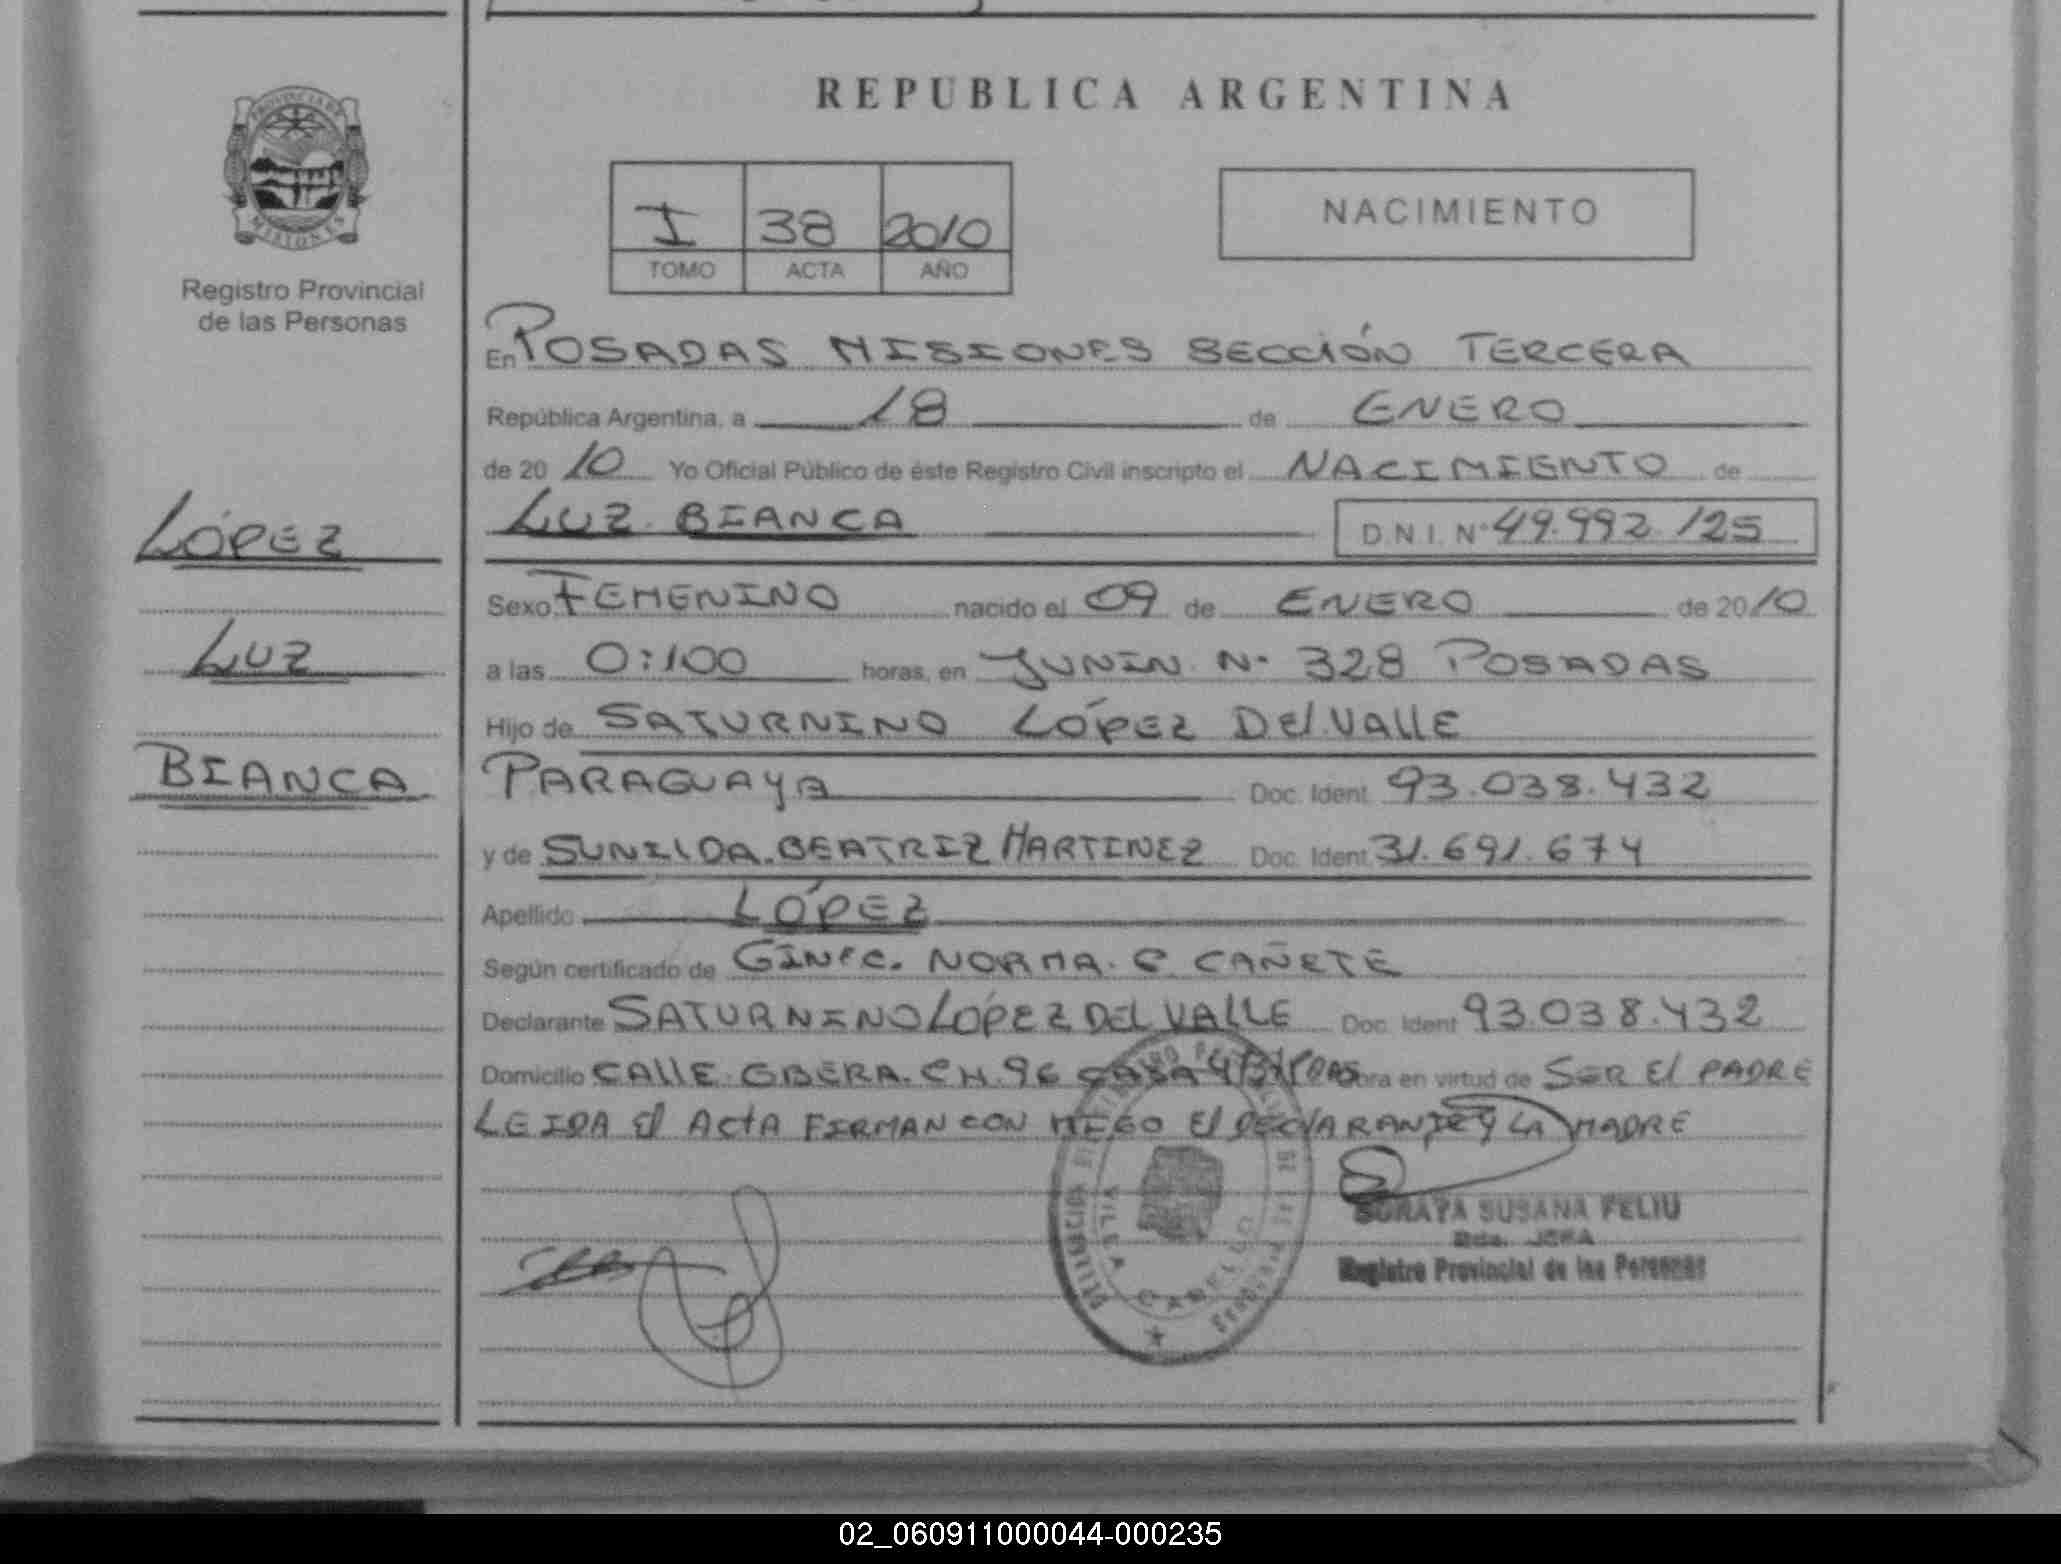 REPUBLICA ARGENTINA
PROVINCIA DE
MISIONES
Registro Provincial
de las Personas
I 38 2010
TOMO ACTA AÑO
NACIMIENTO
En POSADAS MISIONES SECCIÓN TERCERA
República Argentina, a 18 de ENERO
de 20 10 Yo Oficial Público de éste Registro Civil inscripto el NACIMIENTO de
LUZ BIANCA D.N.I. Nº 49.992.125
LÓPEZ
Sexo FEMENINO nacido el 09 de ENERO de 20 10
LUZ
a las 0:100 horas, en JUNIN Nº 328 POSADAS
Hijo de SATURNINO LÓPEZ DEL VALLE
BIANCA
PARAGUAYA Doc. Ident. 93.038.432
y de SUNILDA BEATRIZ MARTINEZ Doc. Ident. 31.691.674
Apellido LÓPEZ
Según certificado de GINEC. NORMA. C. CAÑETE
Declarante SATURNINO LÓPEZ DEL VALLE Doc. Ident 93.038.432
Domicilio CALLE OBERA. CH. 96 CASA obra en virtud de SER El PADRE
LEIDA El ACTA FIRMAN CON MIGO El DECLARANTE Y LA MADRE
VILLA CABELLO
SORAYA SUSANA FELIU
JEFA
Registro Provincial de las Personas
02_060911000044-000235